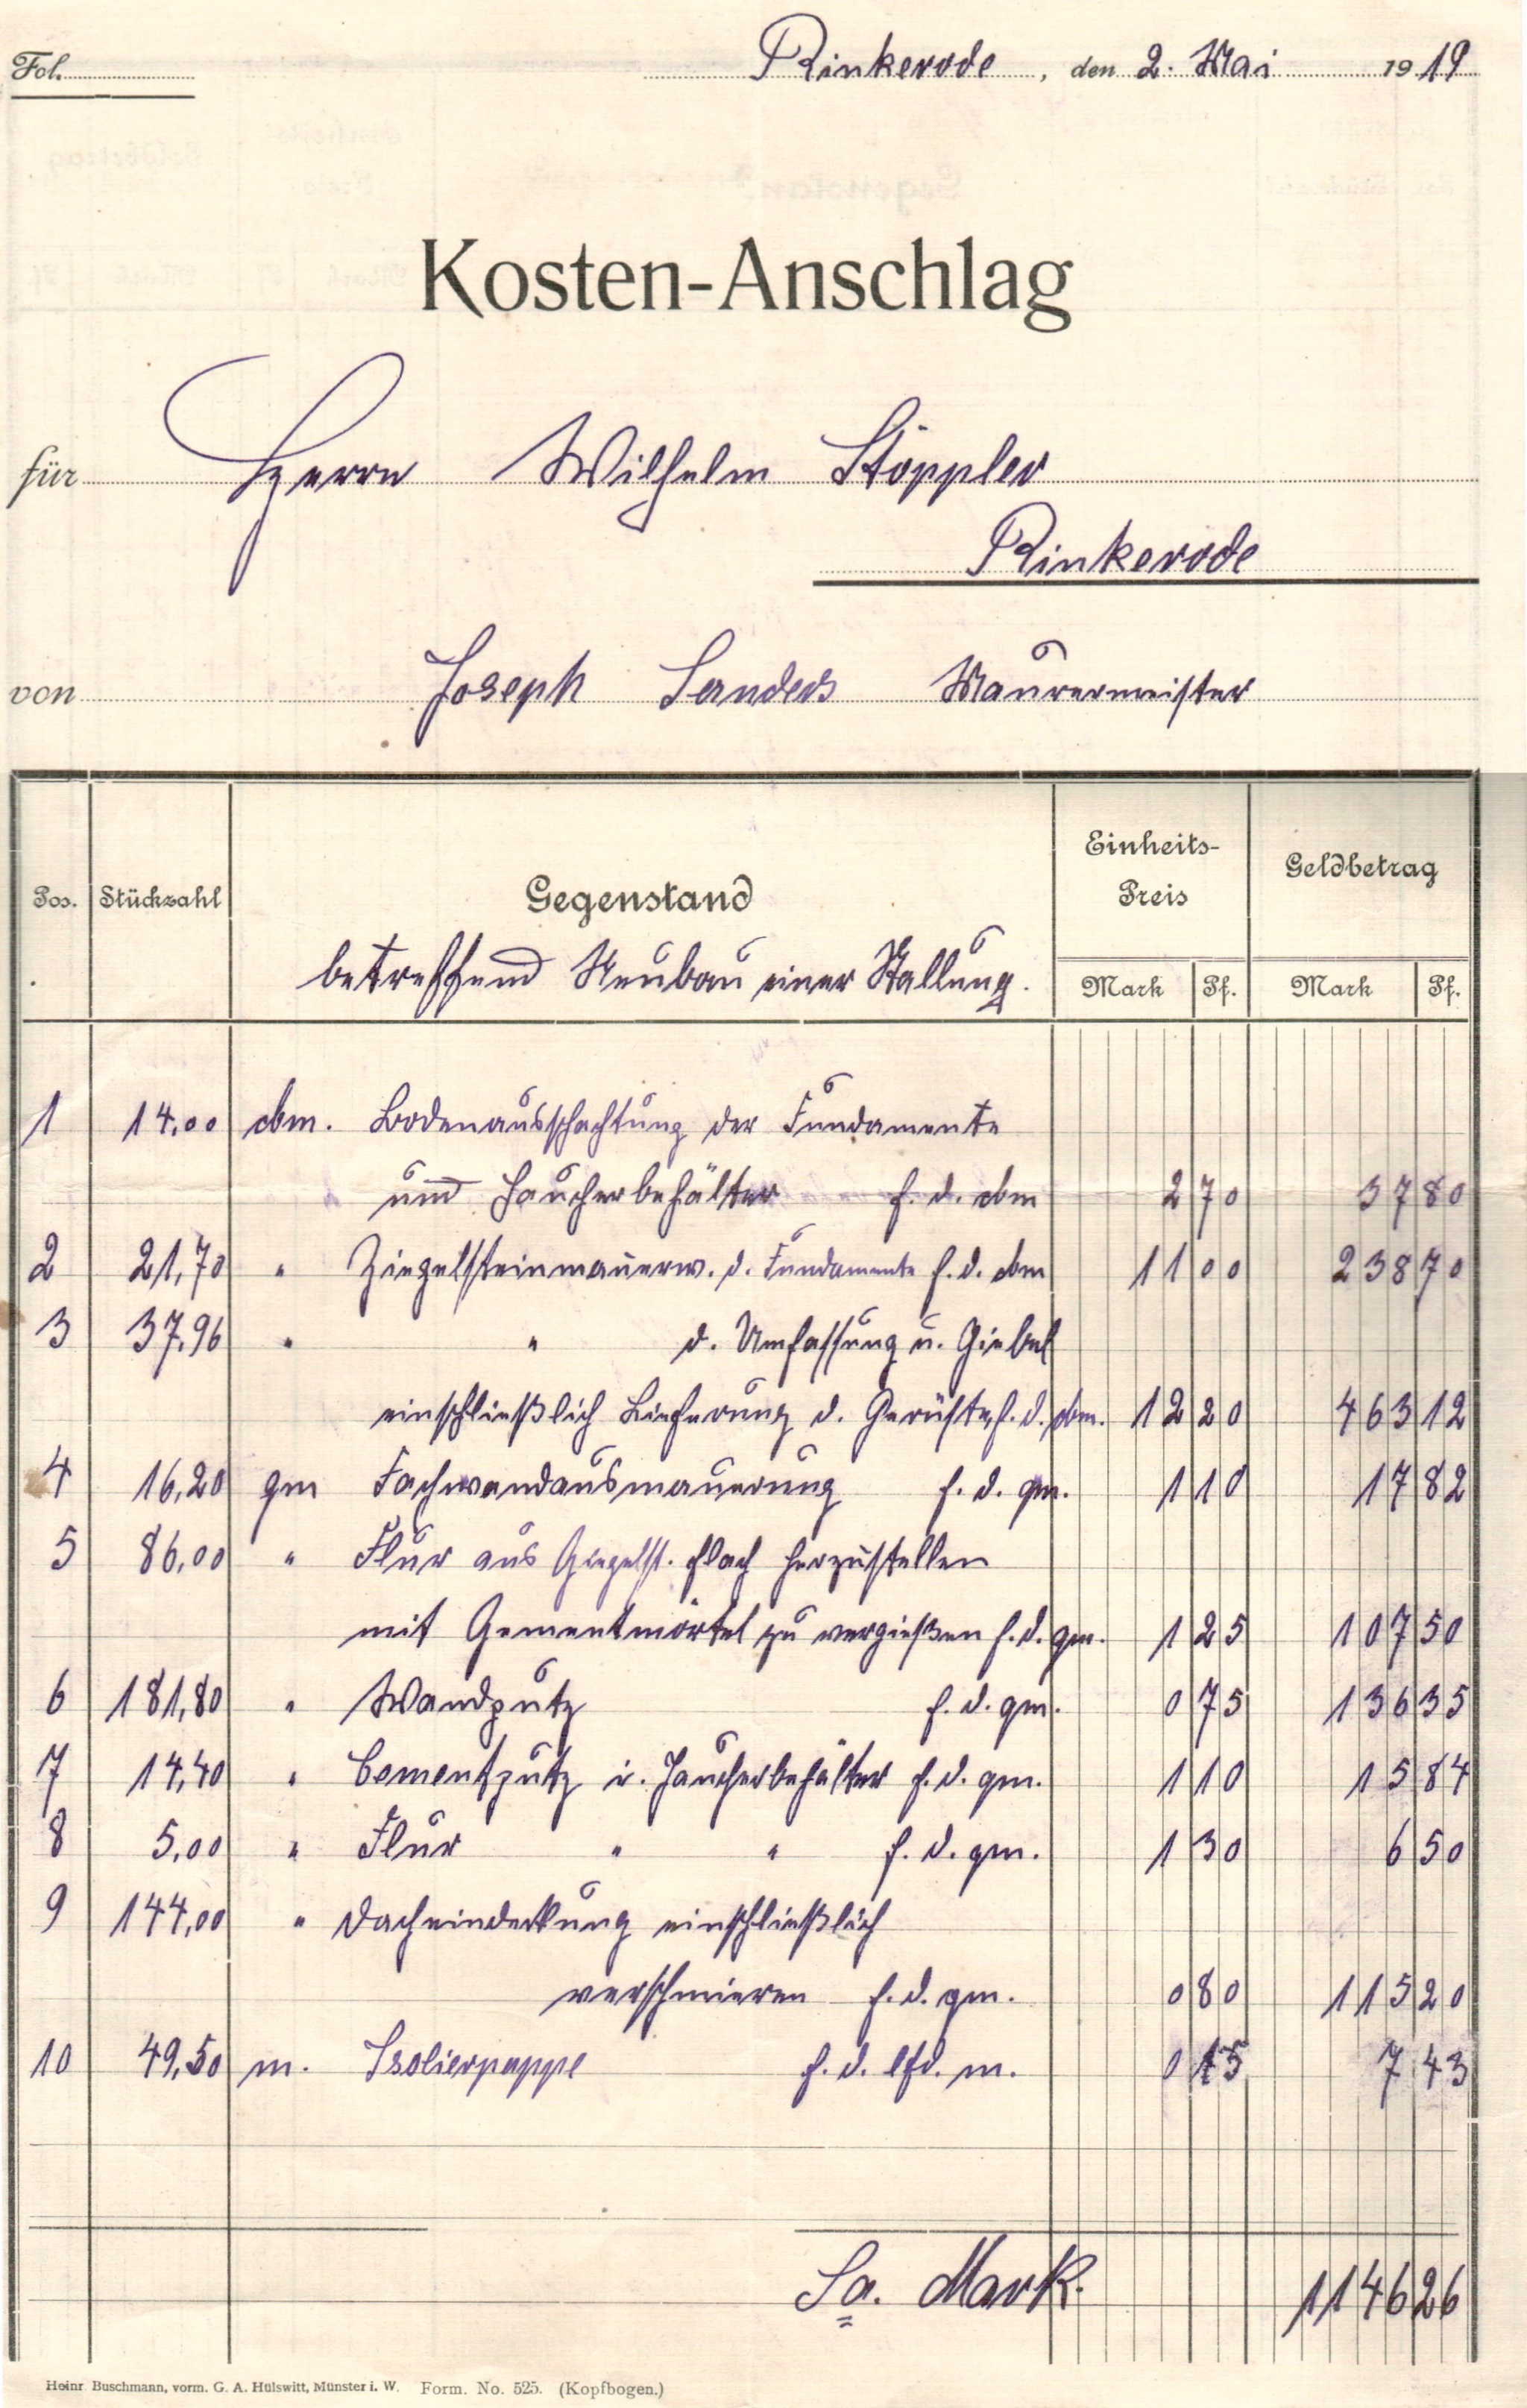 Fol.
Rinkerode, den 2. Mai 1919
Kosten-Anschlag
für Herrn Wilhelm Stöppler
Rinkerode
von Joseph Sanders Maurermeister
Pos. Stückzahl Gegenstand Einheits-Preis Geldbetrag
betreffend Neubau einer Stallung. Mark Pf. Mark Pf.
1 14,00 cbm. Bodenausschachtung der Fundamente
und Jaucherbehälter f. d. cbm 2 70 37 80
2 21,70 " Ziegelsteinmauerw. d. Fundamente f. d. cbm 11 00 238 70
3 37,96 " " d. Umfassung u. Giebel
einschließlich Lieferung d. Gerüste f. d. cbm. 12 20 463 12
4 16,20 qm Fachwandausmauerung f. d. qm. 1 10 17 82
5 86,00 " Flur aus Ziegelst. flach herzustellen
mit Cementmörtel zu vergießen f. d. qm. 1 25 107 50
6 181,80 " Wandputz f. d. qm. 0 75 136 35
7 14,40 " Cementputz i. Jaucherbehälter f. d. qm. 1 10 15 84
8 5,00 " Flur " " f. d. qm. 1 30 6 50
9 144,00 " Dacheindeckung einschließlich
verschmieren f. d. qm. 0 80 115 20
10 49,50 m. Isolierpappe f. d. lfd. m. 0 15 7 43
Sa. Mark. 1146 26
Heinr. Buschmann, vorm. G. A. Hülswitt, Münster i. W. Form. No. 525. (Kopfbogen.)